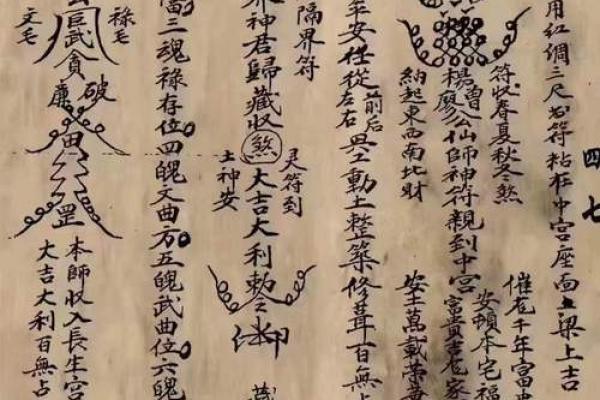 四七
用紅綢三尺符粘在中宮座面梁上吉
催老千年富貴
安頓本宅福
符收春夏秋冬煞
楊曾廖公仙師神符親到中宮
富貴吉老家
納起東西南北財
安土萬載榮華
年安任從前后左右興工動土整築修葺百無占
隔界符
灵符到
界神君歸藏收煞大吉大利勅令
土神安
三魂祿存位四魄文曲方五魄武曲位六魄
祿毛
巨武
貪
破
廉
文毛
罡
本師收入長生宮
大吉大利百無占